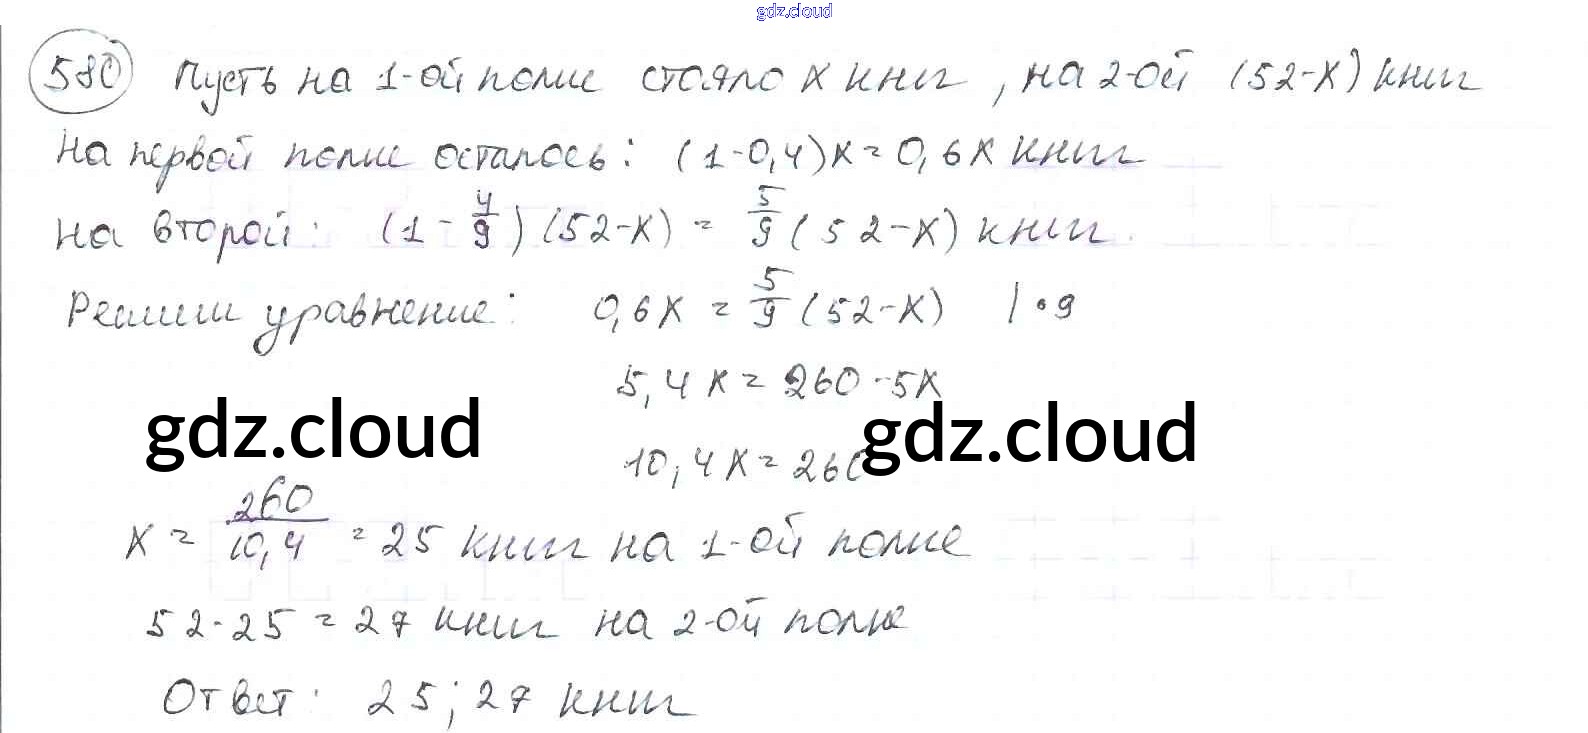 gdz.cloud
580 Пусть на 1-ой полке стояло x книг, на 2-ой (52-x) книг
На первой полке осталось: (1-0,4)x = 0,6x книг
На второй: (1 - 4/9)(52-x) = 5/9 (52-x) книг.
Решим уравнение: 0,6x = 5/9 (52-x) | •9
5,4x = 260-5x
gdz.cloud gdz.cloud
10,4x = 260
x = 260/10,4 = 25 книг на 1-ой полке
52-25 = 27 книг на 2-ой полке
Ответ: 25; 27 книг